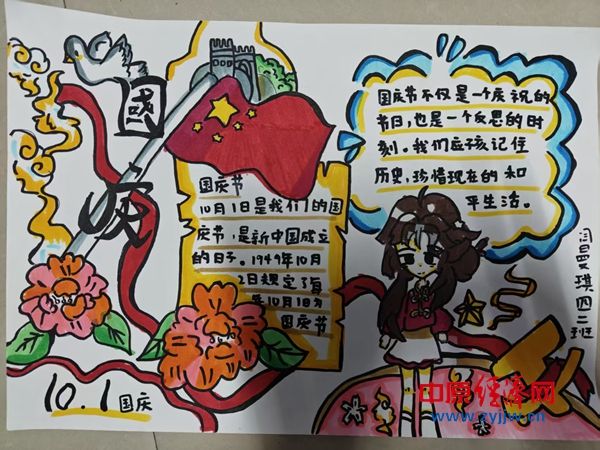 國
庆
国庆节
10月1日是我们的国
庆节,是新中国成立
的日子。1949年10月
2日规定了每
年10月1日为
国庆节
国庆节不仅是一个庆祝的
节日,也是一个反思的时
刻。我们应该记住
历史,珍惜现在的和
平生活。
闫曼琪四二班
10.1国庆
中原经济网
www.zyjjw.cn